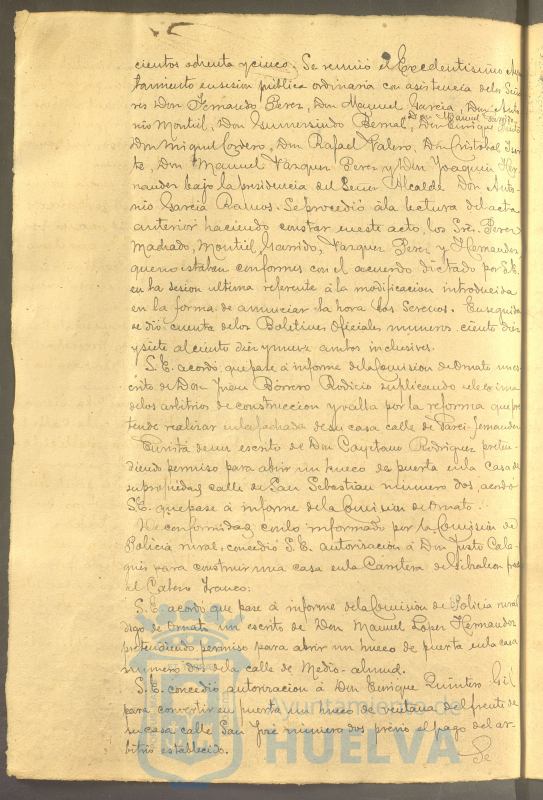 cientos ochenta y cinco; Se reunió el Excelentisimo Ayun
tamiento en sesión pública ordinaria con asistencia de los Seño
res Don Fernando Perez, Don Manuel Garcia, Don Anto
nio Montiel, Don Gumersindo Bernal, Don Manuel Garrido, Don Enrique
Don Miguel Cordero, Don Rafael Valero, Don Cristobal
Don Manuel Vazquez Perez y Don Joaquin Her
nandez bajo la presidencia del Señor Alcalde Don Anto
nio Garcia Ramos. Se procedió á la lectura del acta
anterior haciendo constar en este acto, los Sres. Perez
Machado, Montiel, Garrido, Vazquez Perez y Hernandez,
que no estaban conformes con el acuerdo dictado por S.E.
en la sesion ultima referente á la modificacion introducida
en la forma de anunciar la hora los Serenos. Enseguida
se dió cuenta de los Boletines Oficiales numeros ciento diez
y siete al ciento diez y nueve ambos inclusives.
S.E. acordó, que pase á informe de la Comision de Ornato un es
crito de Don Juan Borrero Rodicio suplicando se le exima
de los arbitrios de construccion y valla por la reforma que pre
tende realizar en la fachada de su casa calle de Garci-fernandez
Cuenta de un escrito de Don Cayetano Rodriguez preten
diendo permiso para abrir un hueco de puerta en la casa de
su propiedad calle de San Sebastian numero dos, acordó
S.E. que pase á informe de la Comision de Ornato.
De conformidad con lo informado por la Comisión de
Policia rural, concedió S.E. autorizacion á Don Justo
para construir una casa en la Carretera de Gibraleon frente
al Cabezo
S.E. acordó que pase á informe de la Comision de Policia rural
digo de Ornato un escrito de Don Manuel Lopez Hernandez
pretendiendo permiso para abrir un hueco de puerta en la casa
numero dos de la calle de Medio-almud.
S.E. concedió autorizacion á Don Enrique Quintero Gil
para convertir en puerta un hueco de ventana del frente de
su casa calle San José numero dos previo el pago del ar
bitrio establecido.
Se
Ayuntamiento de
HUELVA